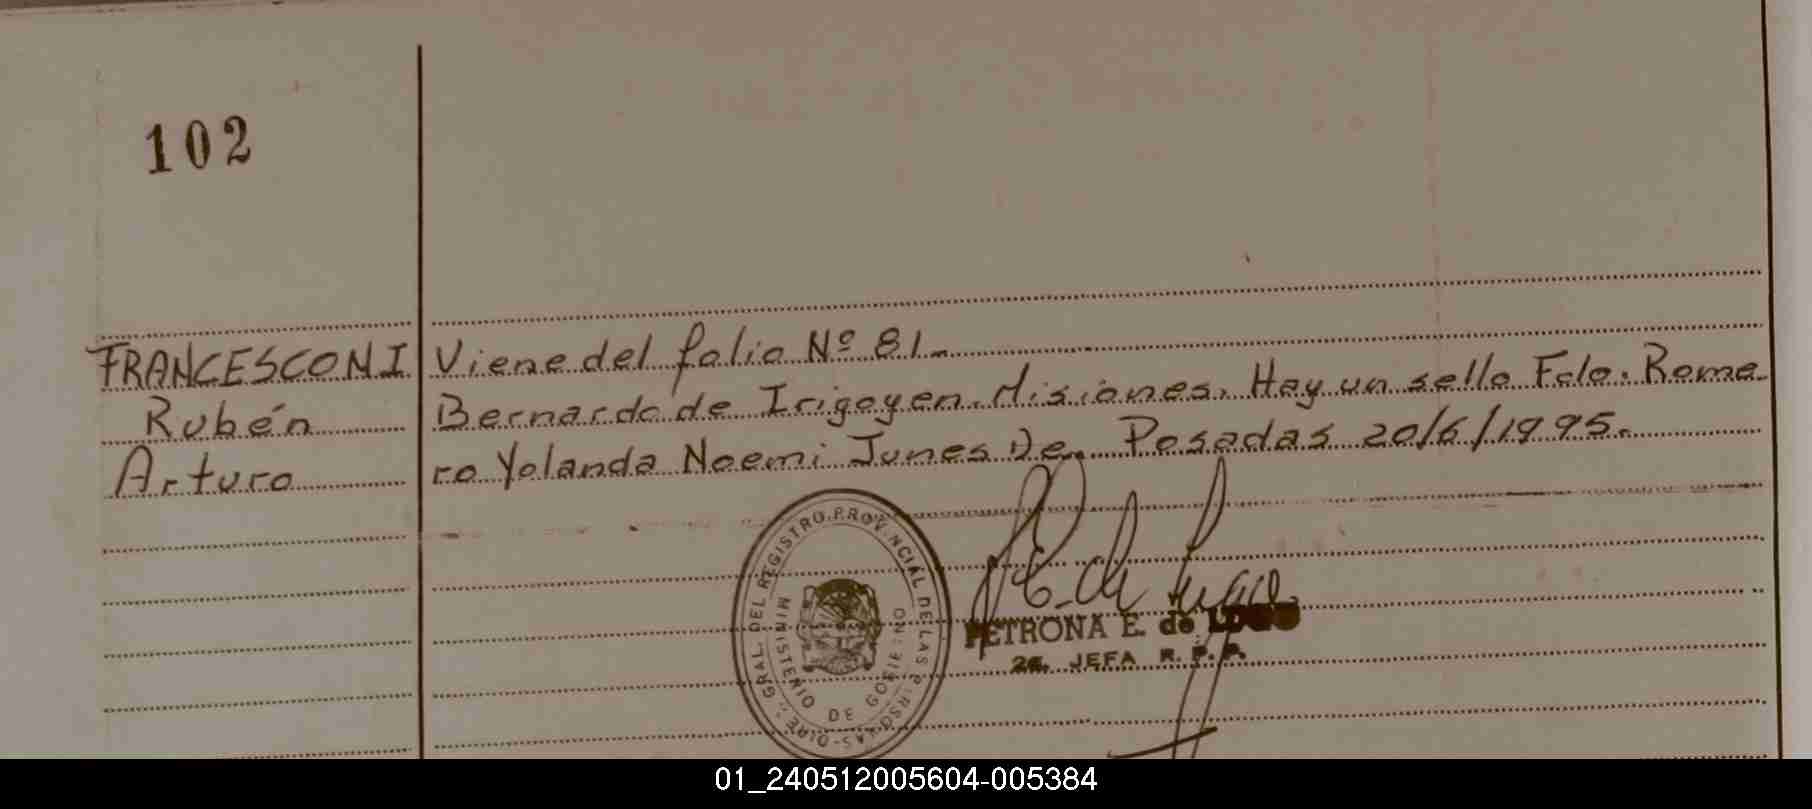 102
FRANCESCONI
Rubén
Arturo
Viene del folio Nº 81.
Bernardo de Irigoyen. Misiones. Hay un sello Fdo. Rome
ro Yolanda Noemi Junes De. Posadas 20/6/1995.
DIRE.. GRAL. DEL REGISTRO PROVINCIAL DE LAS PERSONAS
MINISTERIO DE GOBIERNO
PETRONA E. de
2a. JEFA R. P. P.
01_240512005604-005384